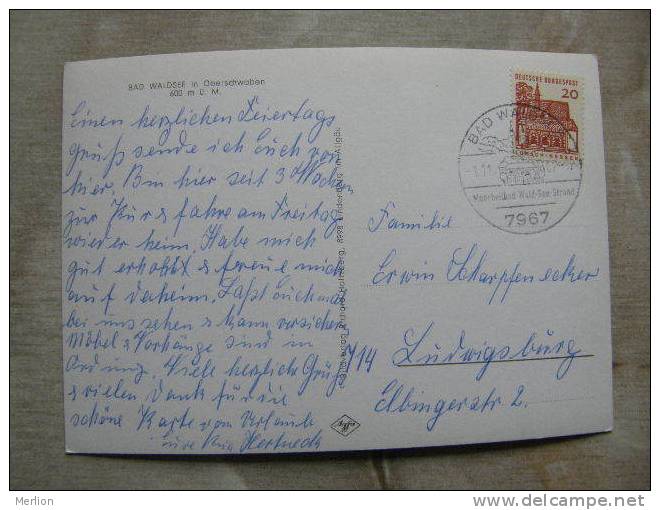 BAD WALDSEE in Oberschwaben
600 m ü. M.
Einen herzlichen Feiertags
gruß sende ich Euch von
hier. Bin hier seit 3 Wochen
zur Kur & fahre am Freitag
wieder heim. Habe mich
gut erholt & freue mich
auf daheim. Laßt Euch mal
bei uns sehen & kann versichern
Möbel & Vorhänge sind in
Ordnung. Viele herzliche Grüße
& vielen Dank für die
schöne Karte vom Urlaub
Eure Hertneck
DEUTSCHE BUNDESPOST
20
LORSCH/HESSEN
BAD WALDSEE
Moorheilbad Wald-See-Strand
7967
Familie
Erwin Scharpfenecker
714 Ludwigsburg
Elbingerstr 2.
Agfa
Merlion
www.delcampe.net